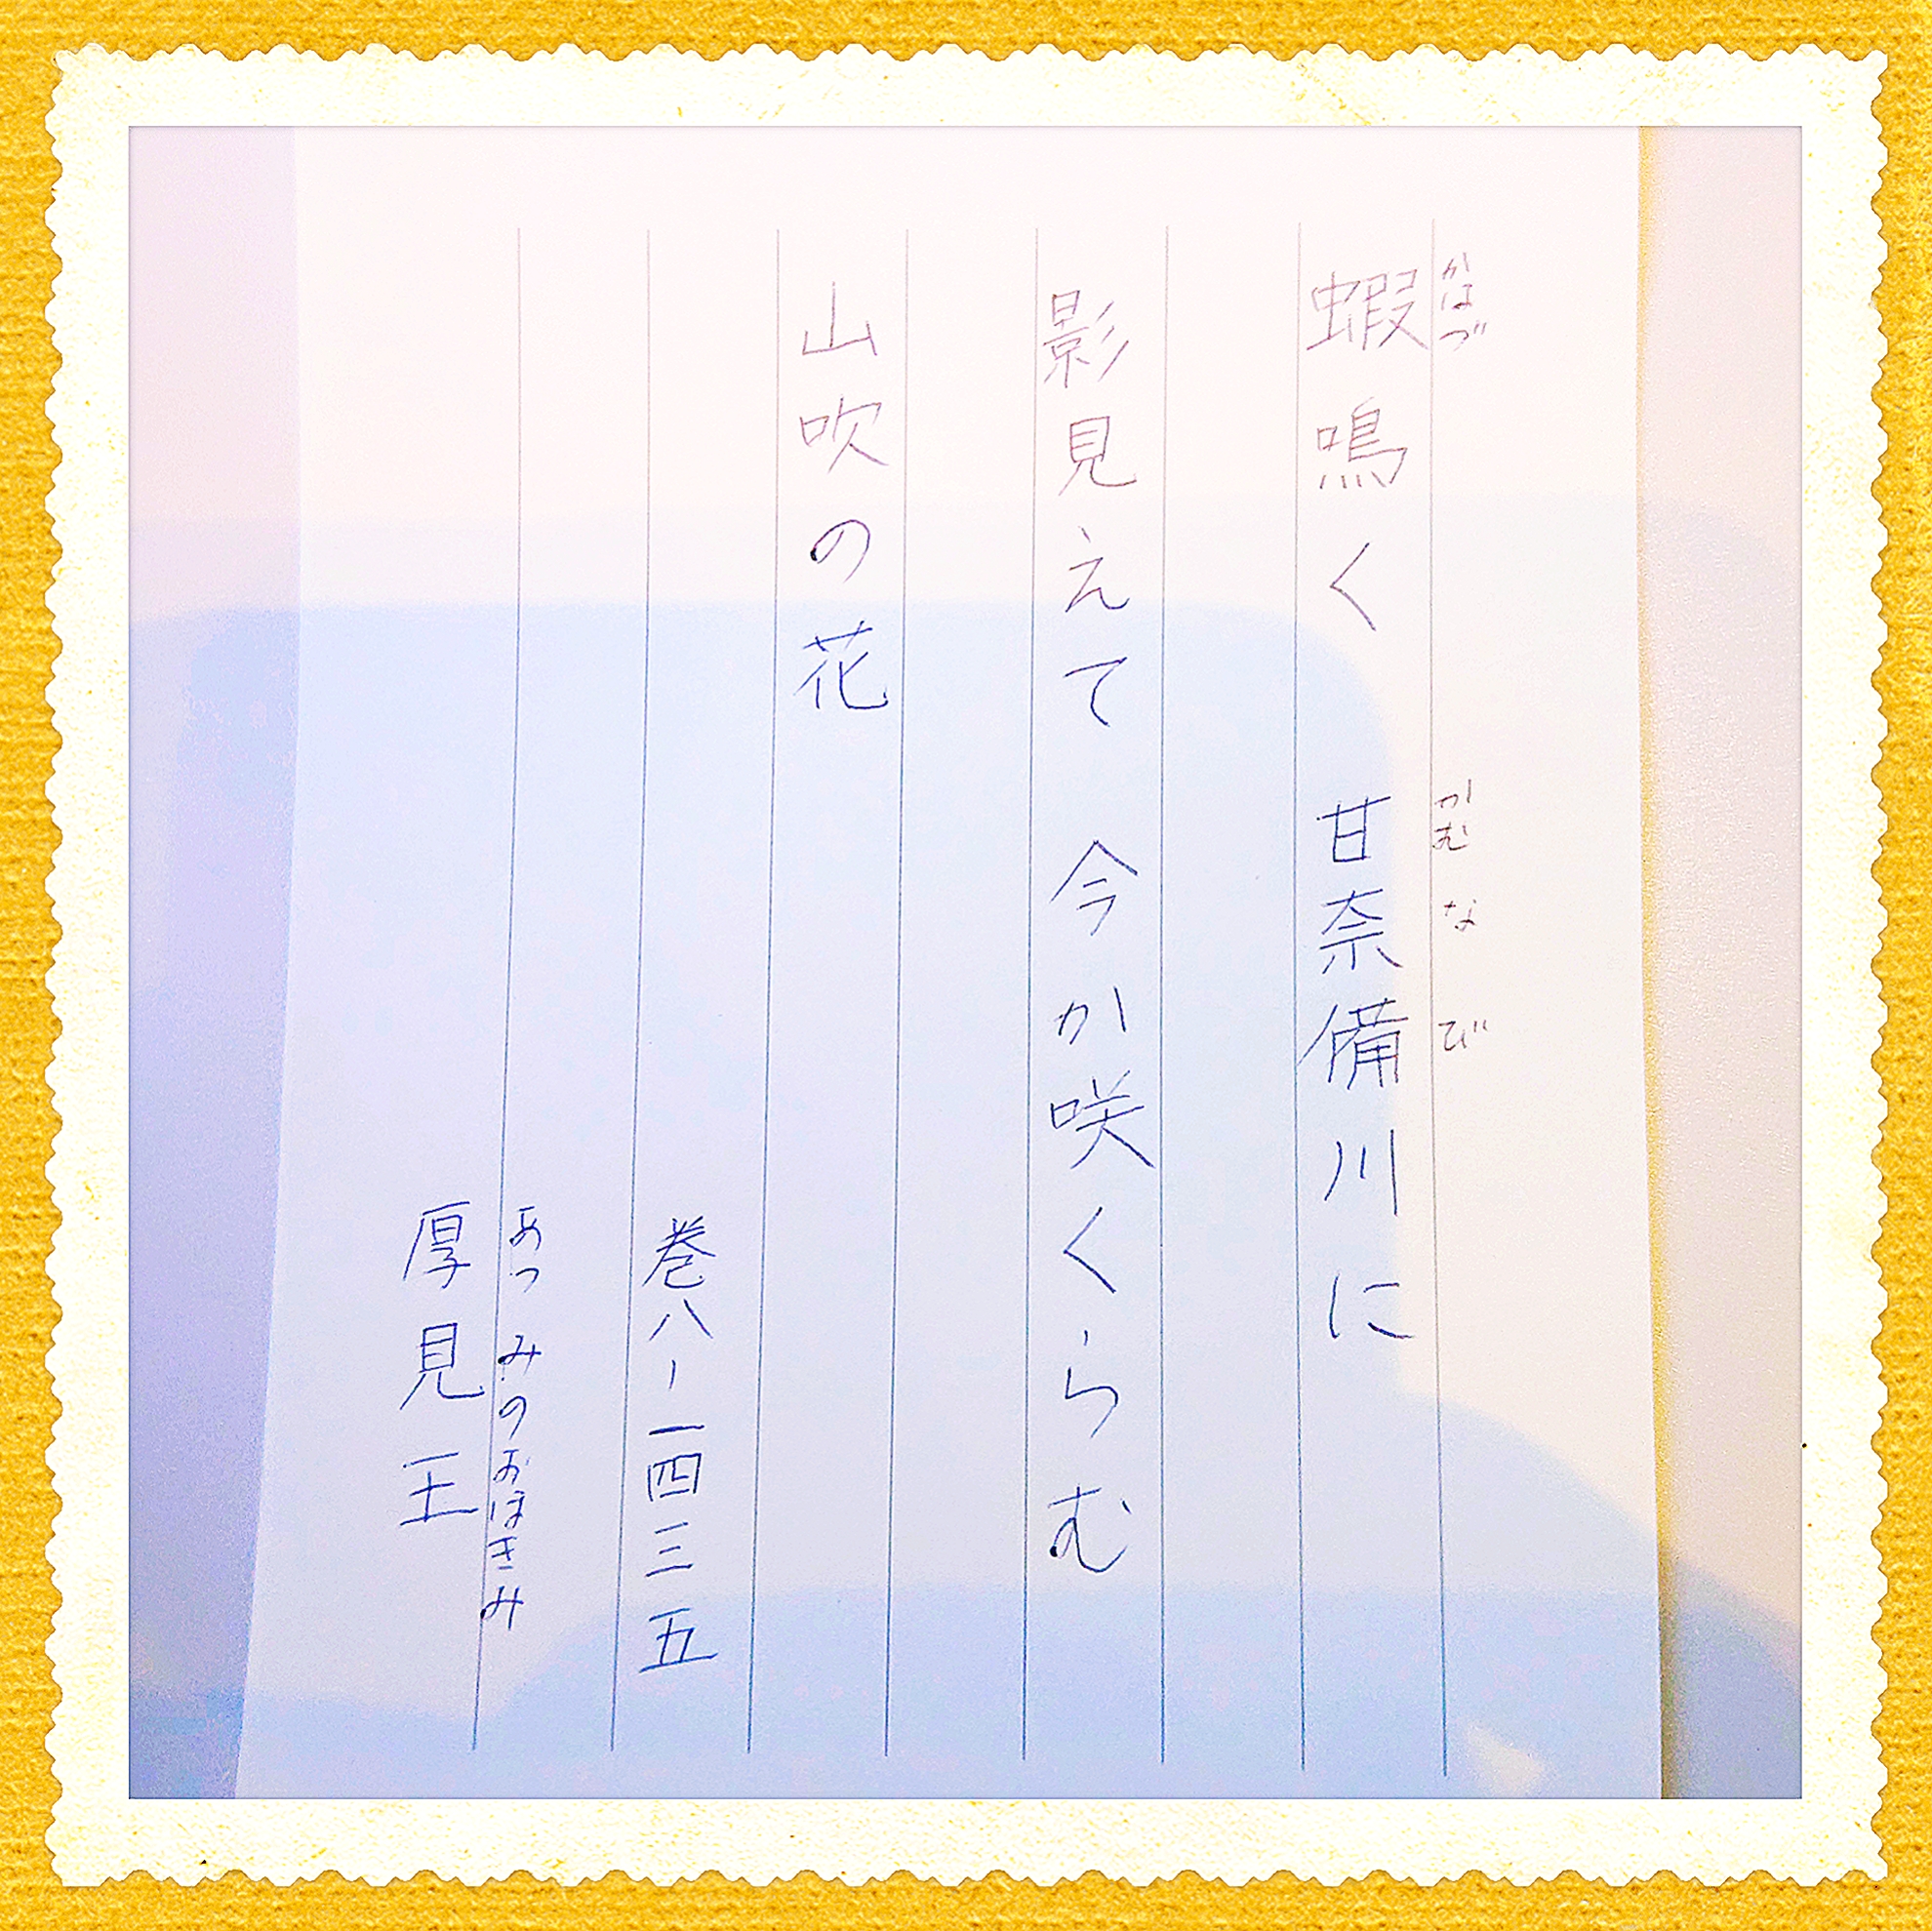 かはづ かむなび
蝦鳴く 甘奈備川に
影見えて 今か咲くらむ
山吹の花
巻八-一四三五
あつみのおほきみ
厚見王